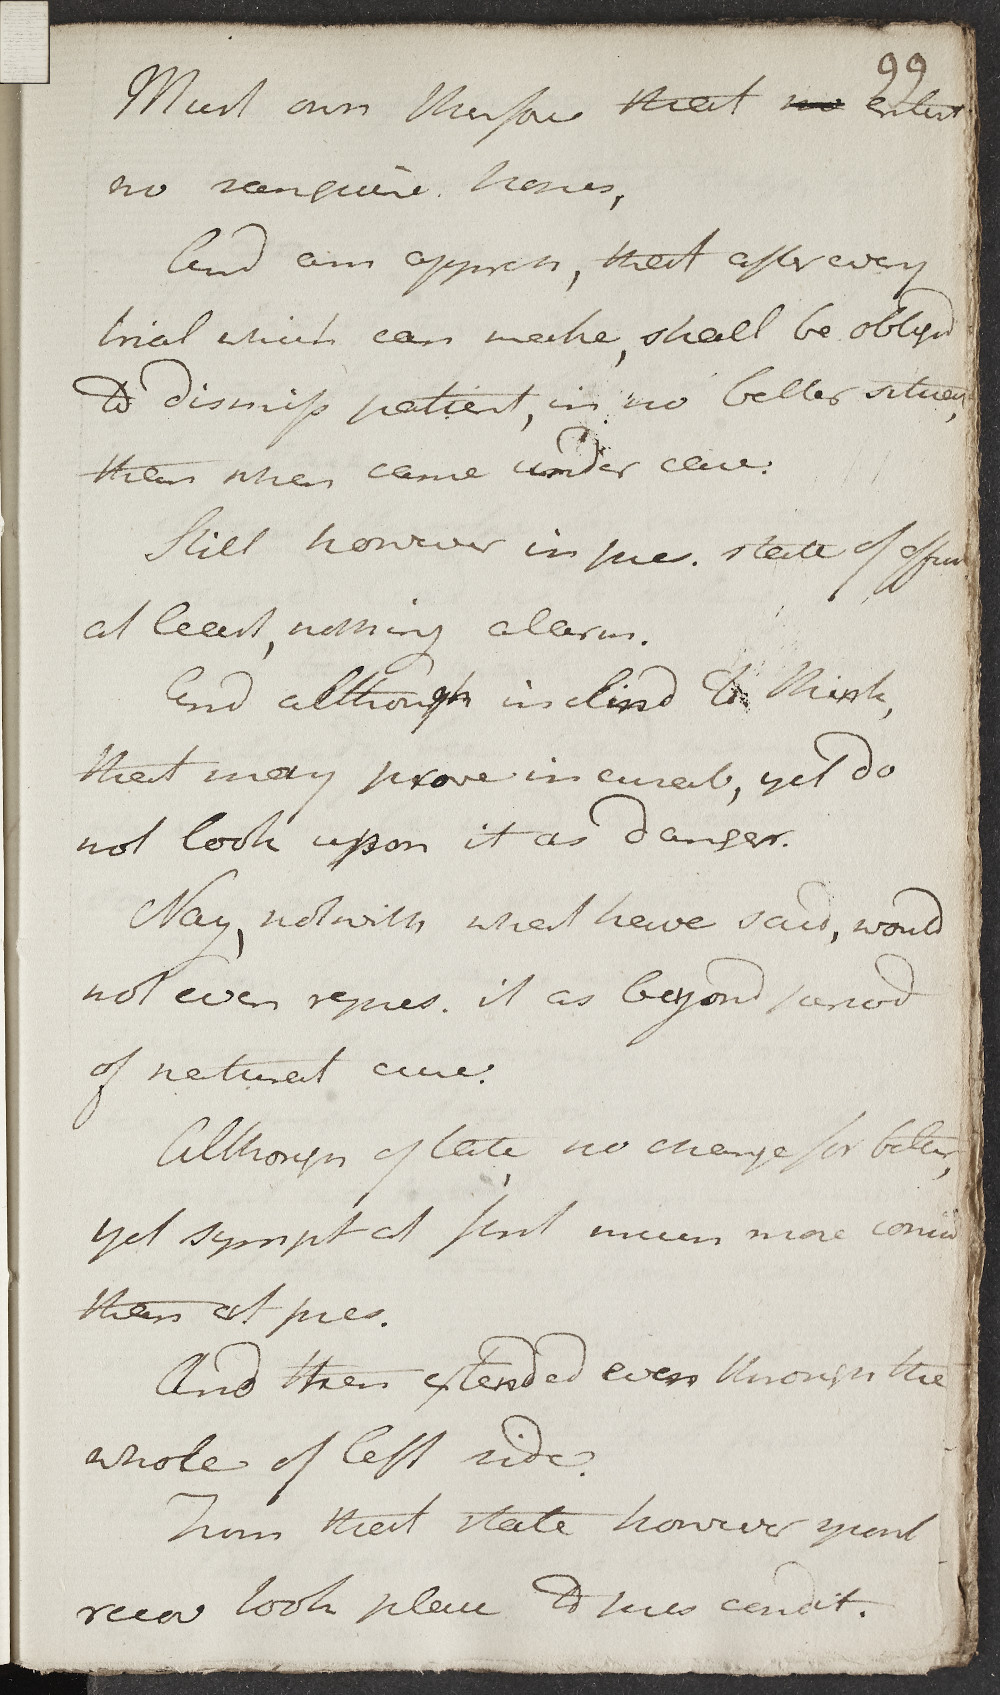 99
Must own therfore that no entert
no sanguine. hopes,
And am appreh, that after every
trial which can make, shall be obligd
to dismiss patient, in no better situat,
than when came under care.
Still however in pre. state of affect
at least, nothing alarm.
And although inclind to think,
that may prove incurab, yet do
not look upon it as danger.
Nay, notwith what have said, would
not even repres. it as beyond period
of natural cure.
Although of late, no change for better,
yet sympt at first much more consid
than at pres.
And then extended even through the
whole of left side.
From that state however spont
recov took place to pres condit.